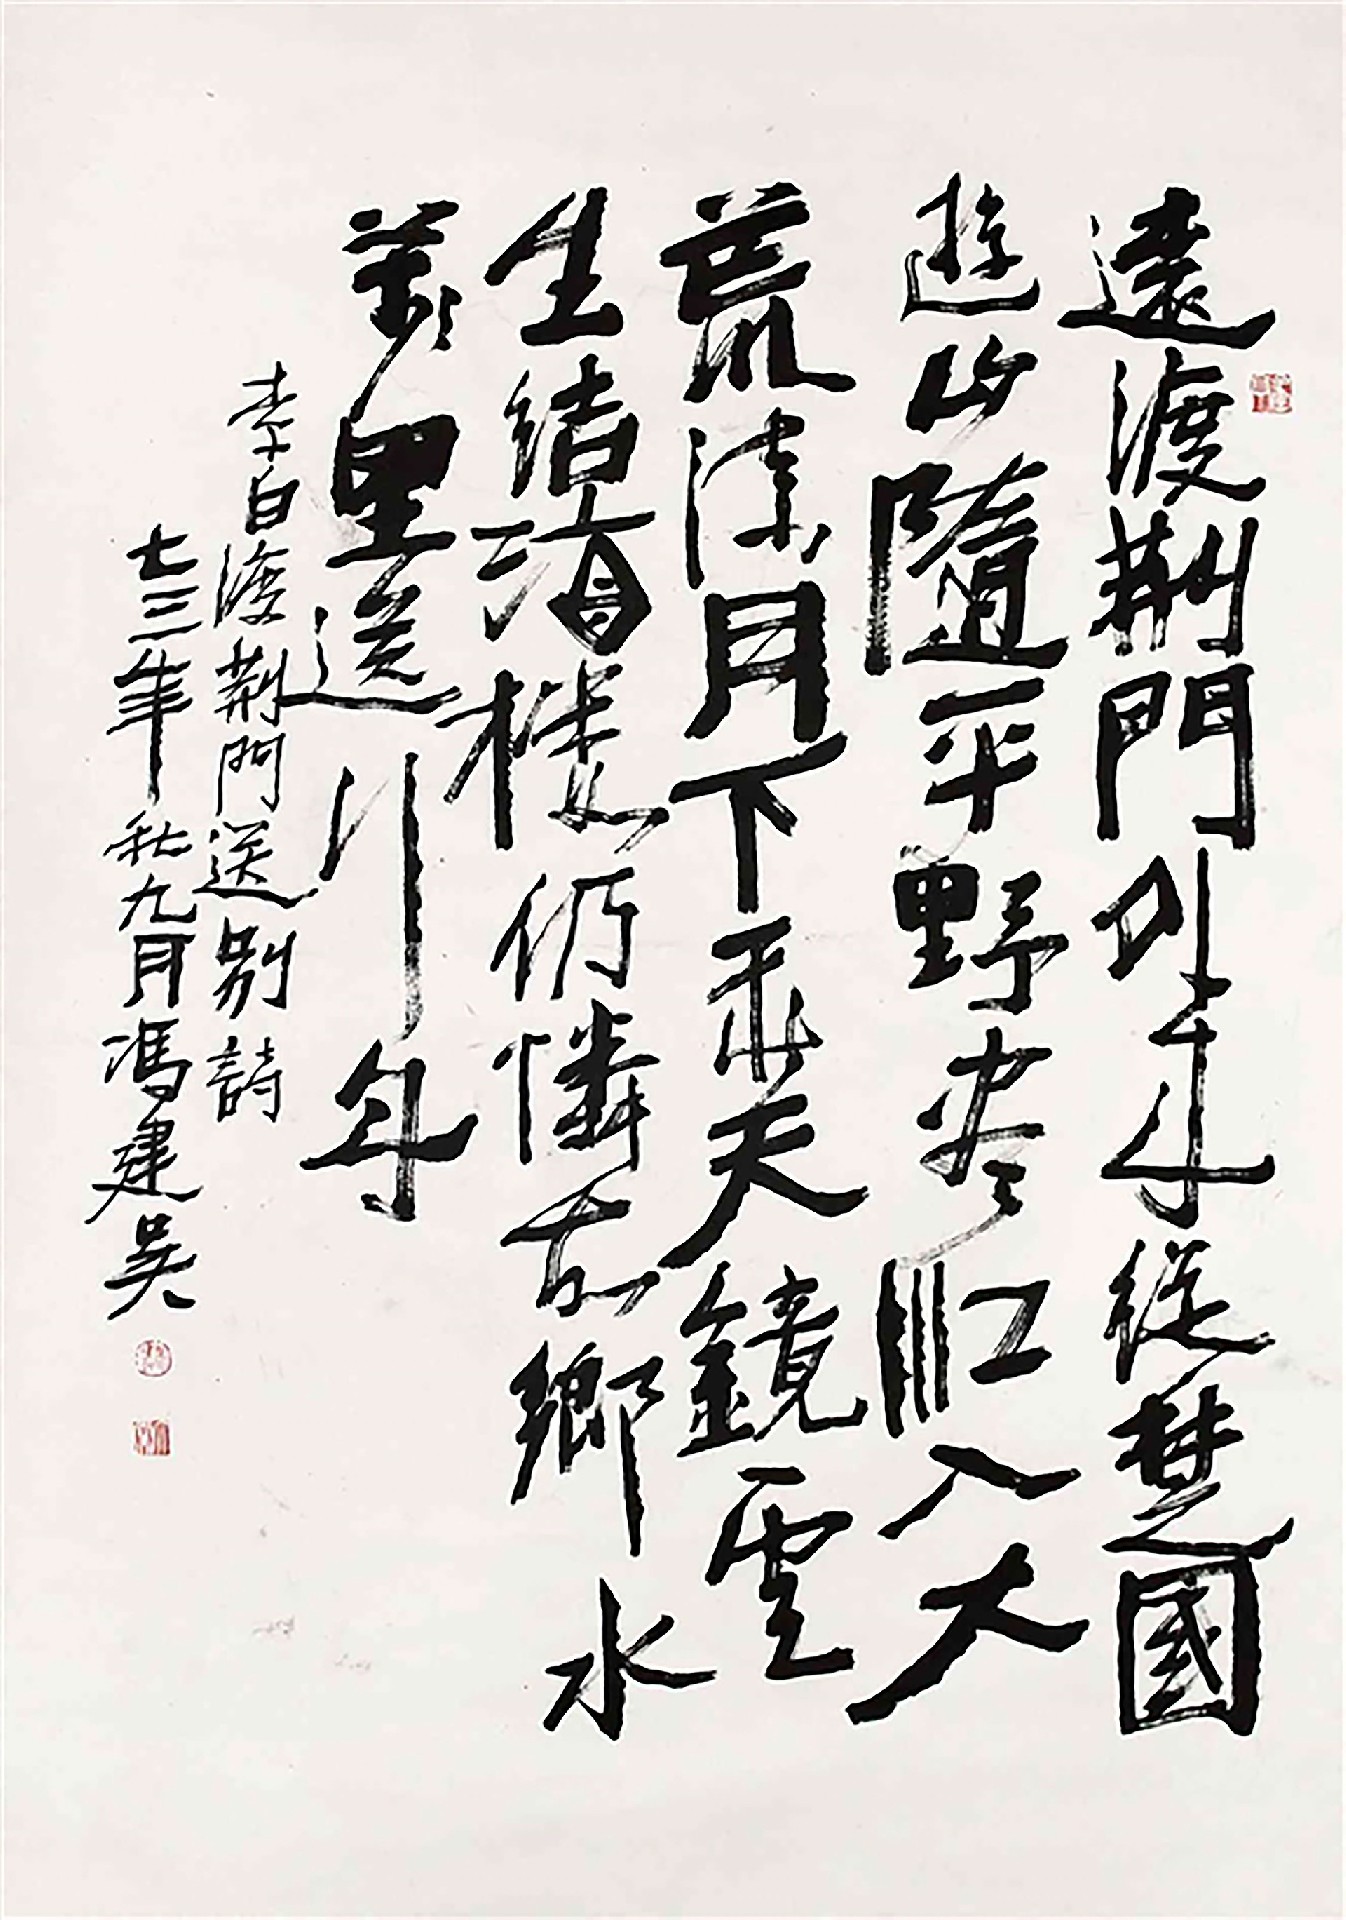 遠渡荆門外來從楚國
遊山隨平野尽江入大
荒流月下飛天鏡雲
生結海樓仍憐故鄉水
萬里送行舟
李白渡荆門送别詩
七三年秋九月馮建吴